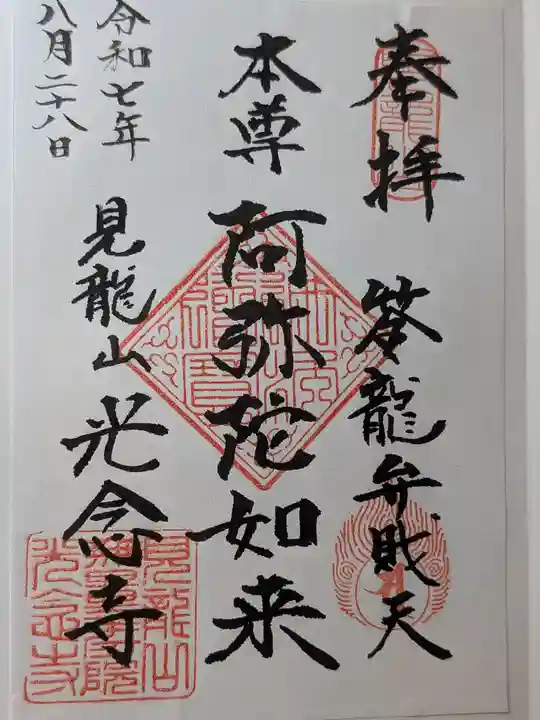 奉拝
筌龍弁財天
本尊 阿弥陀如来
見龍山 光念寺
令和七年
八月二十八日
見龍山
光念寺